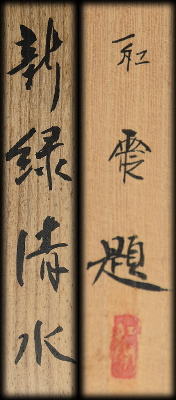 新緑清水
紅霞題